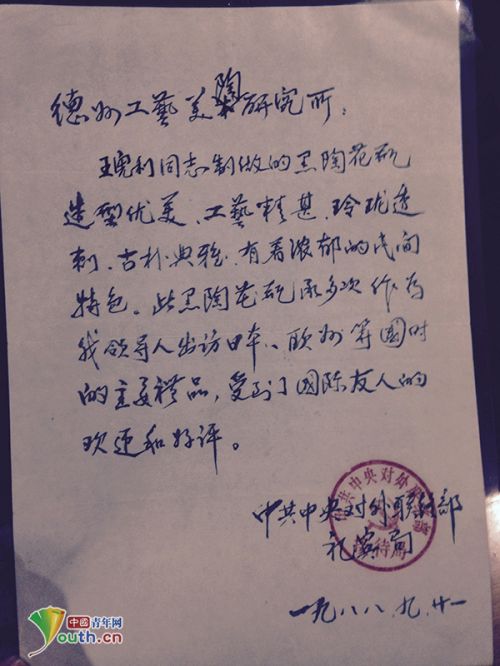 德州工藝美陶研究所:
王宪利同志制做的黑陶花瓶
造型优美、工藝精甚、玲珑透
刺、古朴典雅、有着浓郁的民间
特色。此黑陶花瓶 多次作为
我领导人出访日本、欧州等国时
的主要禮品,受到了国际友人的
欢迎和好评。
中共中央对外联络部
礼宾局
一九八八.九.廿一
中共中央对外
待局
中國青年网
Youth.cn